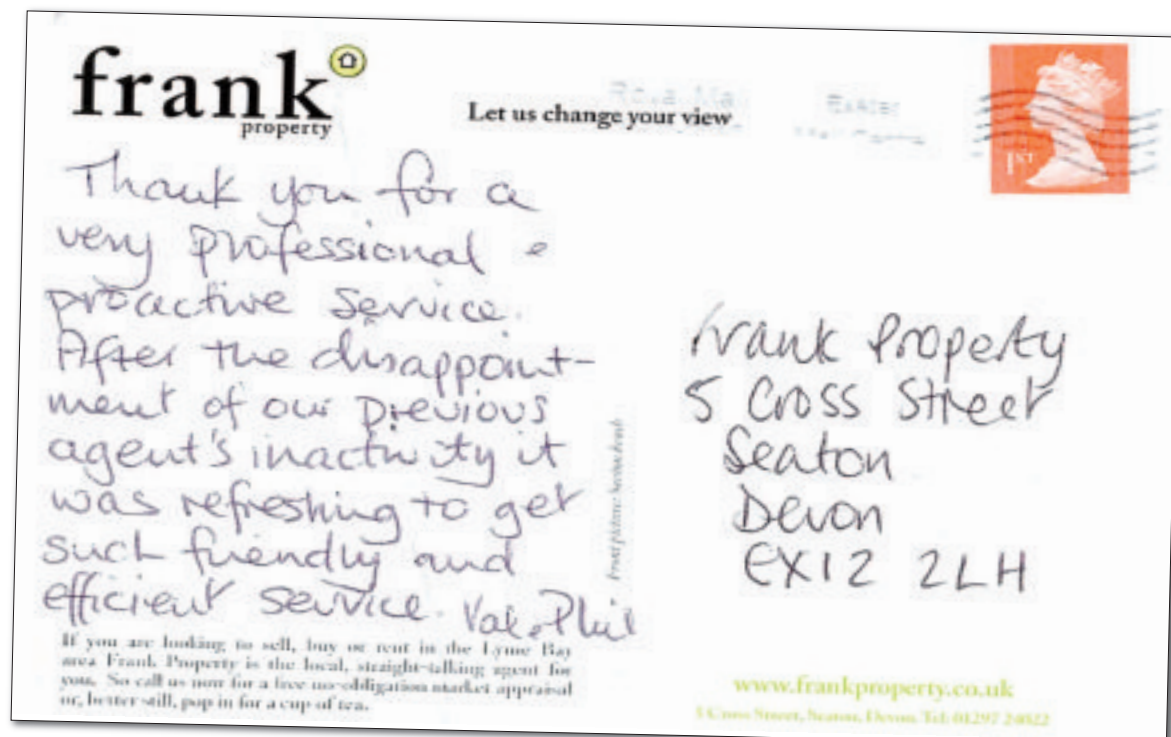 frank
property
Let us change your view
Royal Mail
Exeter
1ST
Thank you for a
very professional &
proactive service.
After the disappoint-
ment of our previous
agent's inactivity it
was refreshing to get
such friendly and
efficient service. Val & Phil
Front picture: Seaton beach
Frank Property
5 Cross Street
Seaton
Devon
EX12 2LH
If you are looking to sell, buy or rent in the Lyme Bay
area Frank Property is the local, straight-talking agent for
you. So call us now for a free no-obligation market appraisal
or, better still, pop in for a cup of tea.
www.frankproperty.co.uk
5 Cross Street, Seaton, Devon. Tel: 01297 24022